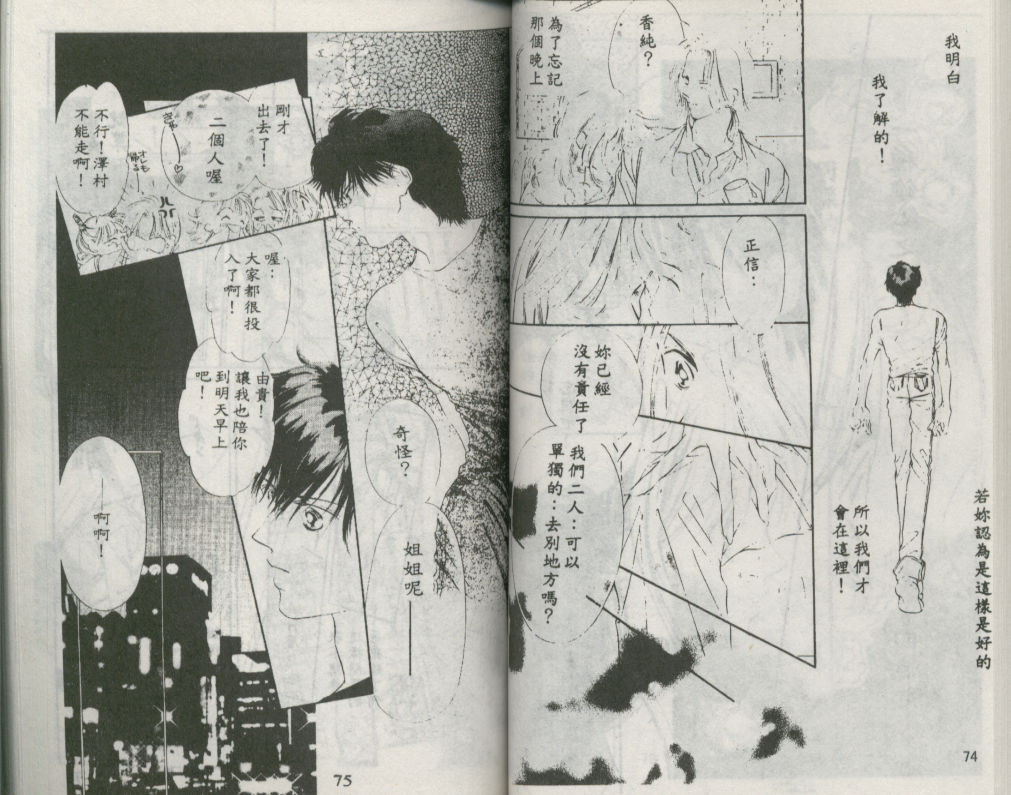 我明白
我了解的！
若妳認為是這樣是好的
所以我們才
會在這裡！
香純？
為了忘記
那個晚上
正信：
妳已經
沒有責任了
我們二人：可以
單獨的：去別地方嗎？
74
剛才
出去了！
二個人喔
不行！澤村
不能走啊！
オレも
帰る
喔：
大家都很投
入了啊！
由貴！
讓我也陪你
到明天早上
吧！
奇怪？
姐姐呢——
——啊啊！
75